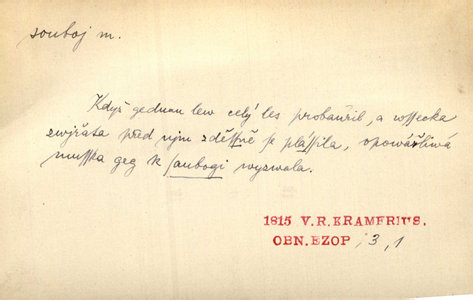 souboj m.
Když gednau lew celý les probauřil, a wssecka
zwjřata před njm zděssně se plássila, opowážliwá
musska geg k saubogi wyzwala.
1815 V.R.KRAMERIUS.
OBN.EZOP i3,1